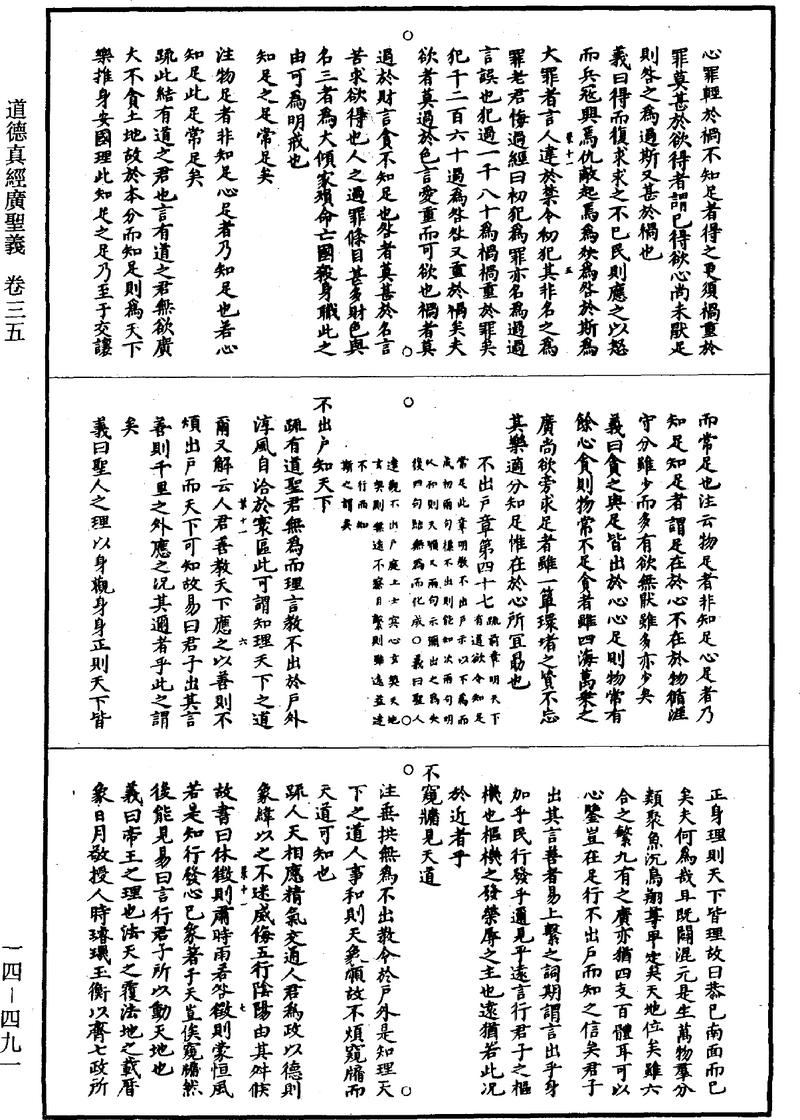 道德真經廣聖義　卷三五
一四—四九一
心罪輕於禍不知足者得之更須禍重於
罪莫甚於欲得者謂已得欲心尚未猒足
則咎之為過斯又甚於禍也
義曰得而復求求之不已民則應之以怒
而兵寇興焉仇敵起焉為殃為咎於斯為
大罪者言人違於禁令初犯其非名之為
罪老君悔過經曰初犯為罪亦名為過過
言誤也犯過一千八十為禍禍重於罪矣
犯千二百六十過為咎咎又重於禍矣夫
欲者莫過於色言愛重而可欲也禍者莫
過於財言貪不知足也咎者莫甚於名言
苦求欲得也人之過罪條目甚多財色與
名三者為大傾家殞命亡國殺身職此之
由可為明戒也
知足之足常足矣
注物足者非知足心足者乃知足也若心
知足此足常足矣
疏此結有道之君也言有道之君無欲廣
大不貪土地故於本分而知足則為天下
樂推身安國理此知足之足乃至于交讓
而常足也注云物足者非知足心足者乃
知足知足者謂足在於心不在於物循涯
守分雖少而多有欲無猒雖多亦少矣
義曰貪之與足皆出於心心足則物常有
餘心貪則物常不足貪者雖四海萬乘之
廣尚欲旁求足者雖一簞環堵之資不忘
其樂適分知足惟在於心所宜勗也
不出戶章第四十七
疏前章明天下有道欲令知足
常足此章明教不出戶示以下為而
成初兩句標不出則能知次兩句明
以知則天順又兩句示彌出之為失
後四句貽無為而化成○義曰聖人
達觀不出戶庭上士冥心玄契天地
言契則無遠不察目繫則雖遠並達
不行而知
斯之謂矣
不出戶知天下
疏有道聖君無為而理言教不出於戶外
淳風自洽於寰區此可謂知理天下之道
爾又解云人君善教天下應之以善則不
煩出戶而天下可知故易曰君子出其言
善則千里之外應之況其邇者乎此之謂
矣
義曰聖人之理以身觀身身正則天下皆
正身理則天下皆理故曰恭己南面而已
矣夫何為哉且既闢混元是生萬物羣分
類聚魚沉鳥翔尊卑定矣天地位矣雖六
合之繁九有之廣亦猶四支百體耳可以
心鑒豈在足行不出戶而知之信矣君子
出其言善者易上繫之詞期謂言出乎身
加乎民行發乎邇見乎遠言行君子之樞
機也樞機之發榮辱之主也遠猶若此況
於近者乎
不窺牖見天道
注垂拱無為不出教令於戶外是知理天
下之道人事和則天象順故不煩窺牖而
天道可知也
疏人天相應精氣交通人君為政以德則
象緯以之不迷威侮五行陰陽由其舛候
故書曰休徵則肅時雨若咎徵則蒙恒風
若是知行發心已象著于天豈俟窺牖然
後能見易曰言行君子所以動天地也
義曰帝王之理也法天之覆法地之載曆
象日月敬授人時璿璣玉衡以齊七政所